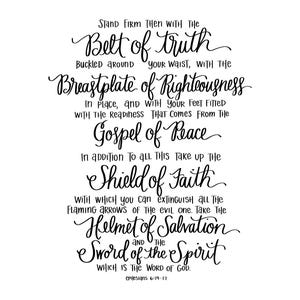 STAND FIRM THEN WITH THE
Belt of truth
BUCKLED AROUND YOUR WAIST, WITH THE
Breastplate of Righteousness
IN PLACE, AND WITH YOUR FEET FITTED
WITH THE READINESS THAT COMES FROM THE
Gospel of Peace
IN ADDITION TO ALL THIS TAKE UP THE
Shield of Faith
WITH WHICH YOU CAN EXTINGUISH ALL THE
FLAMING ARROWS OF THE EVIL ONE. TAKE THE
Helmet of Salvation
AND THE
Sword of the Spirit
WHICH IS THE WORD OF GOD.
EPHESIANS 6:14-17